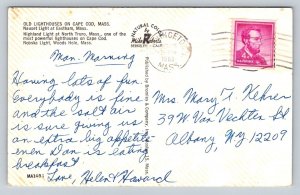 OLD LIGHTHOUSES ON CAPE COD, MASS.
Nauset Light at Eastham, Mass.
Highland Light at North Truro, Mass., one of the
most powerful lighthouses on Cape Cod.
Nobska Light, Woods Hole, Mass.
NATURAL COLOR
BERKELEY, CALIF.
MASS
Mon. Morning
Having lots of fun.
Everybody is fine
and the salt air
is sure giving us
an extra big appetite
even Dan is eating
breakfast
Love, Helen & Howard
MA1481
Mrs. Mary T. Kehrer
39 M Van Vechten St
Albany, NY 12209